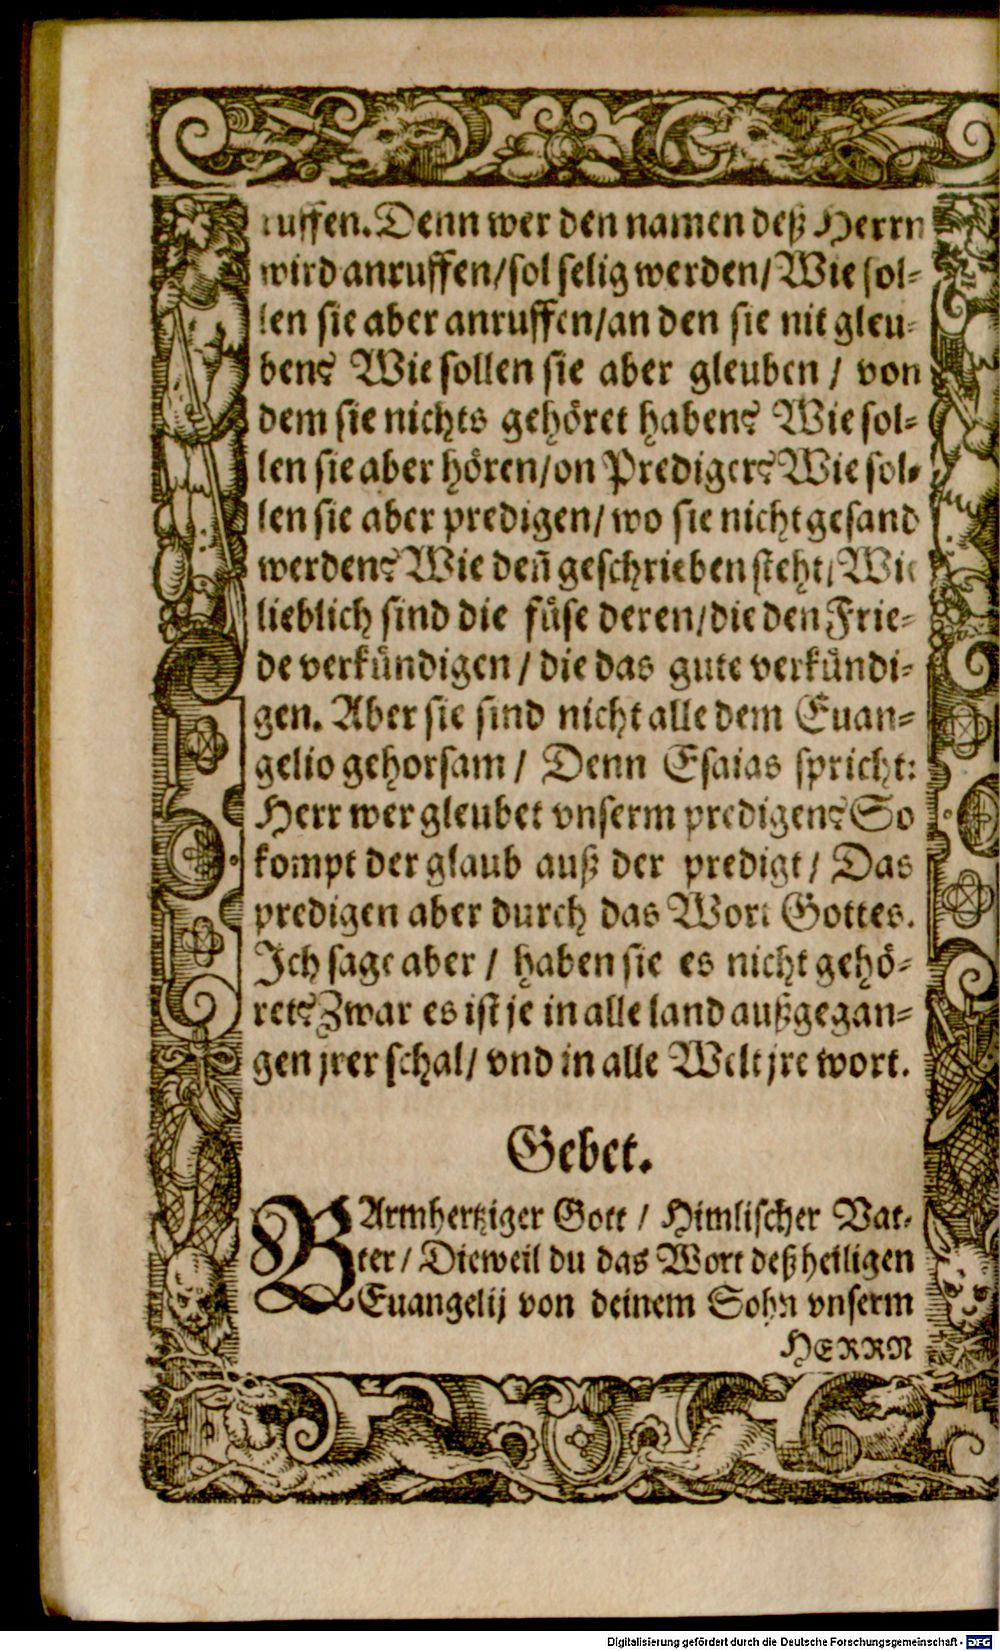 ruffen. Denn wer den namen deß Herrn
wird anruffen/ sol selig werden/ Wie sol⸗
len sie aber anruffen/ an den sie nit gleu⸗
ben? Wie sollen sie aber gleuben / von
dem sie nichts gehöret haben? Wie sol⸗
len sie aber hören/ on Prediger? Wie sol⸗
len sie aber predigen/ wo sie nicht gesand
werden? Wie den̄ geschrieben steht/ Wie
lieblich sind die fuͤse deren/ die den Frie⸗
de verkuͤndigen / die das gute verkuͤndi⸗
gen. Aber sie sind nicht alle dem Euan⸗
gelio gehorsam / Denn Esaias spricht:
Herr wer gleubet vnserm predigen? So
kompt der glaub auß der predigt / Das
predigen aber durch das Wort Gottes.
Ich sage aber / haben sie es nicht gehö⸗
ret? Zwar es ist je in alle land außgegan⸗
gen jrer schal/ vnd in alle Welt jre wort.
Gebet.
BArmhertziger Gott / Himlischer Vat⸗
ter / Dieweil du das Wort deß heiligen
Euangelij von deinem Sohn vnserm
HERRN
Digitalisierung gefördert durch die Deutsche Forschungsgemeinschaft - DFG